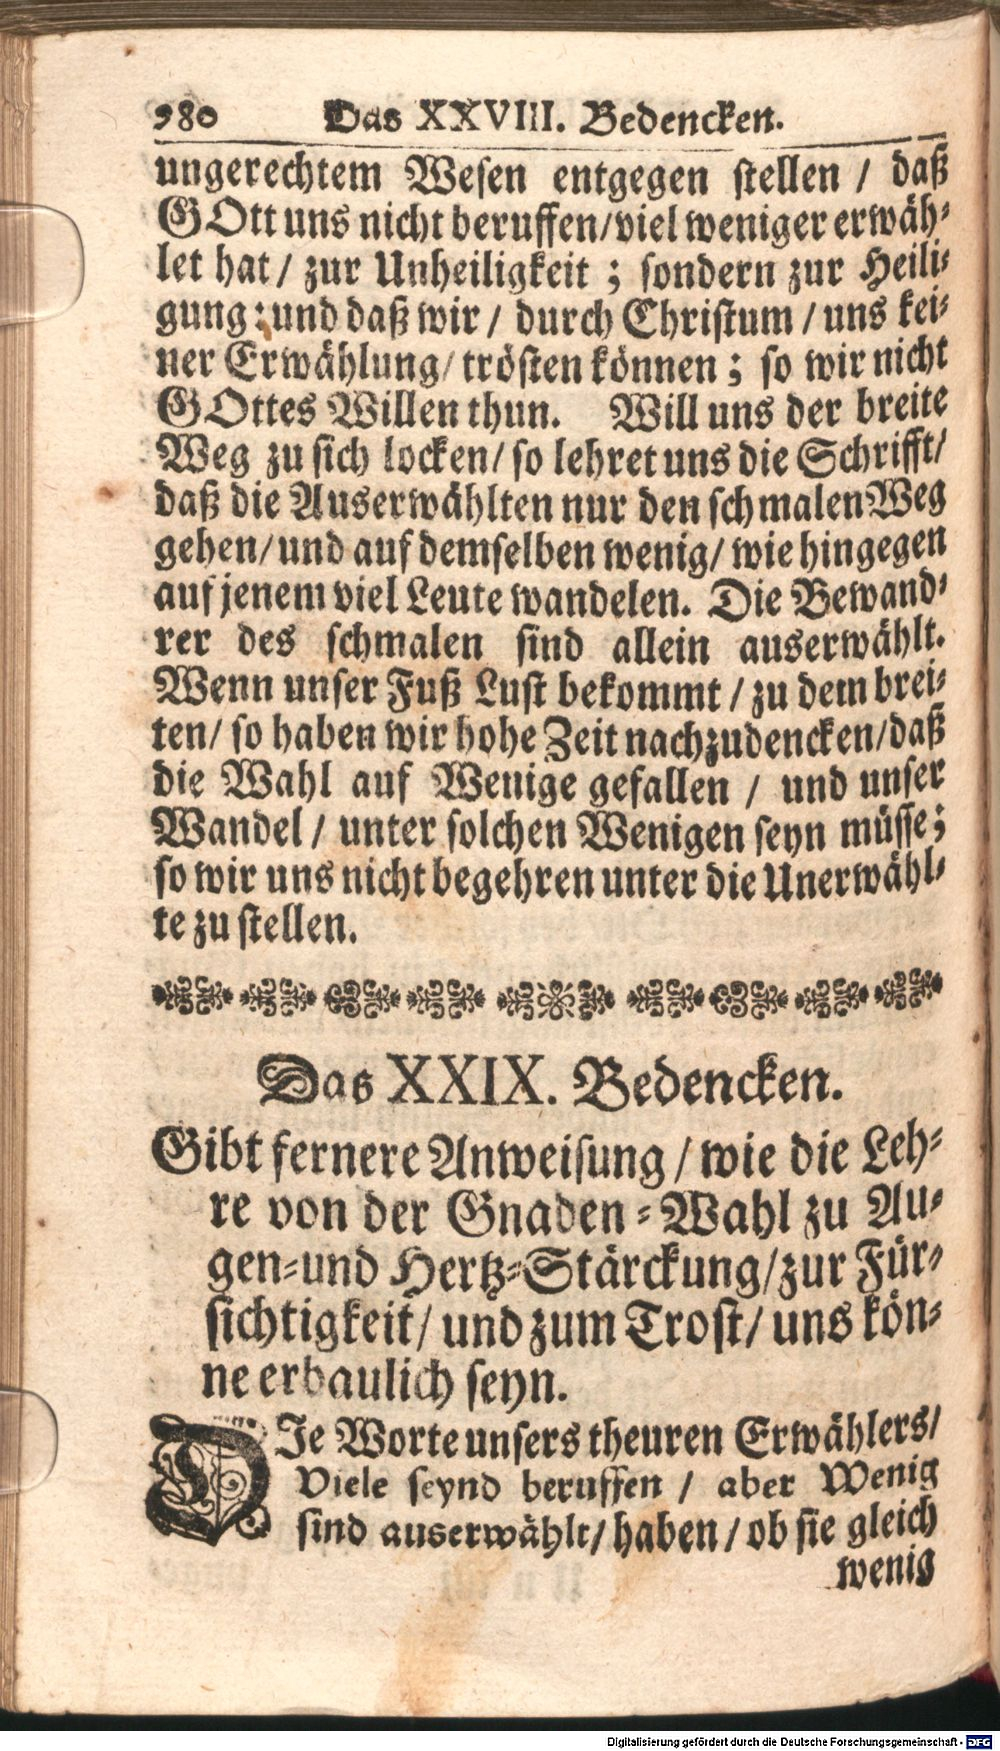 980 Das XXVIII. Bedencken.
ungerechtem Wesen entgegen stellen / daß
GOtt uns nicht beruffen/viel weniger erwäh-
let hat / zur Unheiligkeit ; sondern zur Heili-
gung: und daß wir / durch Christum / uns kei-
ner Erwählung/ trösten können ; so wir nicht
GOttes Willen thun. Will uns der breite
Weg zu sich locken/ so lehret uns die Schrifft/
daß die Auserwählten nur den schmalen Weg
gehen/ und auf demselben wenig/ wie hingegen
auf jenem viel Leute wandelen. Die Bewand-
rer des schmalen sind allein auserwählt.
Wenn unser Fuß Lust bekommt / zu dem brei-
ten/ so haben wir hohe Zeit nachzudencken/daß
die Wahl auf Wenige gefallen / und unser
Wandel / unter solchen Wenigen seyn müsse;
so wir uns nicht begehren unter die Unerwähl-
te zu stellen.
Das XXIX. Bedencken.
Gibt fernere Anweisung / wie die Leh-
re von der Gnaden-Wahl zu Au-
gen-und Hertz-Stärckung/zur Für-
sichtigkeit/ und zum Trost/ uns kön-
ne erbaulich seyn.
DIe Worte unsers theuren Erwählers/
Viele seynd beruffen / aber Wenig
sind auserwählt/ haben / ob sie gleich
wenig
Digitalisierung gefördert durch die Deutsche Forschungsgemeinschaft - DFG